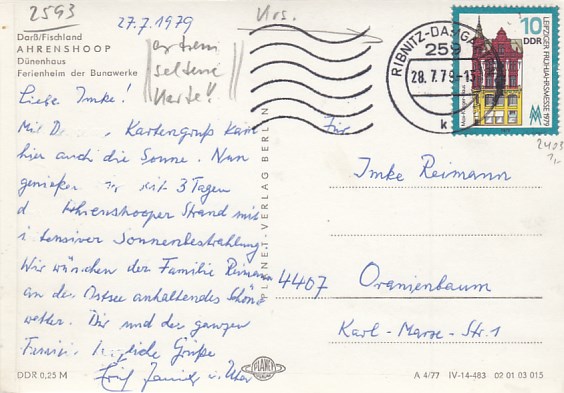 2593
27.7.1979
Urs.
extrem
seltene
Karte!!
Darß/Fischland
AHRENSHOOP
Dünenhaus
Ferienheim der Bunawerke
Liebe Imke!
Mit Kartengruß kam
hier auch die Sonne. Nun
genießen wir seit 3 Tagen
Ahrenshooper Strand mit
intensiver Sonnenbestrahlung
Wir wünschen der Familie Reimann
an der Ostsee anhaltendes Schön
wetter. Dir und der ganzen
Familie herzliche Grüße
DDR 0,25 M
PLANET-VERLAG BERLIN
PLANET
RIBNITZ-DAMGA
259
28.7.79-13
k
10
DDR
LEIPZIGER FRÜHJAHRSMESSE 1979
2403
Für
Imke Reimann
4407 Oranienbaum
Karl-Marx-Str. 1
A 4/77 IV-14-483 02 01 03 015